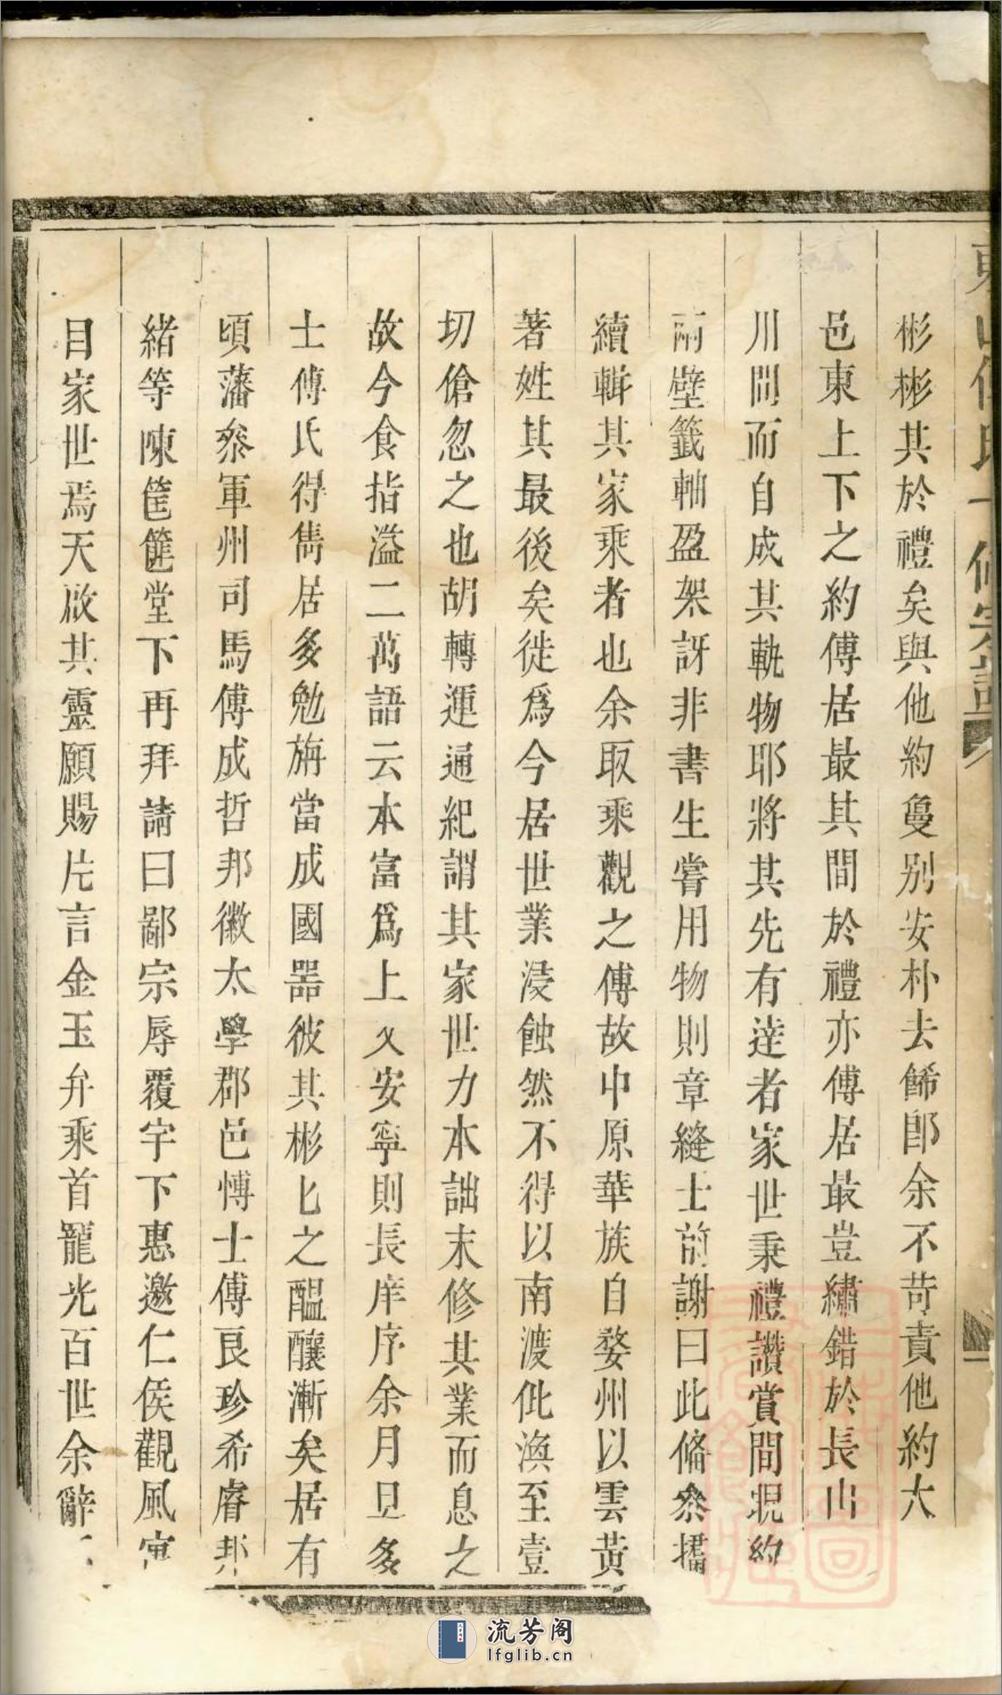 彬彬其於禮矣與他約敻別安朴去餙郎余不苛責他約大
邑東上下之約傅居最其間於禮亦傅居最豈繡錯於長山
川間而自成其軌物耶將其先有達者家世秉禮讚賞間覌約
兩壁籤軸盈架訝非書生嘗用物則章縫士前謝曰此脩叅
續輯其家乘者也余取乘觀之傅故中原華族自婺州以雲黃
著姓其最後矣徙爲今居世業浸蝕然不得以南渡仳渙至壹
切傖忽之也胡轉運通紀謂其家世力本詘末修其業而息之
故今食指溢二萬語云本富爲上乂安寧則長庠序余月旦多
士傅氏得雋居多勉旃當成國噐彼其彬匕之醞釀漸矣居有
頃藩叅軍州司馬傅成哲邦徽太學郡邑博士傅良珍希睿邦
緒等陳筐篚堂下再拜請曰鄙宗辱覆宇下惠邀仁侯觀風寓
目家世焉天啟其靈願賜片言金玉弁乘首寵光百世余辭
東山傅氏修宗譜
流芳阁
lfglib.cn